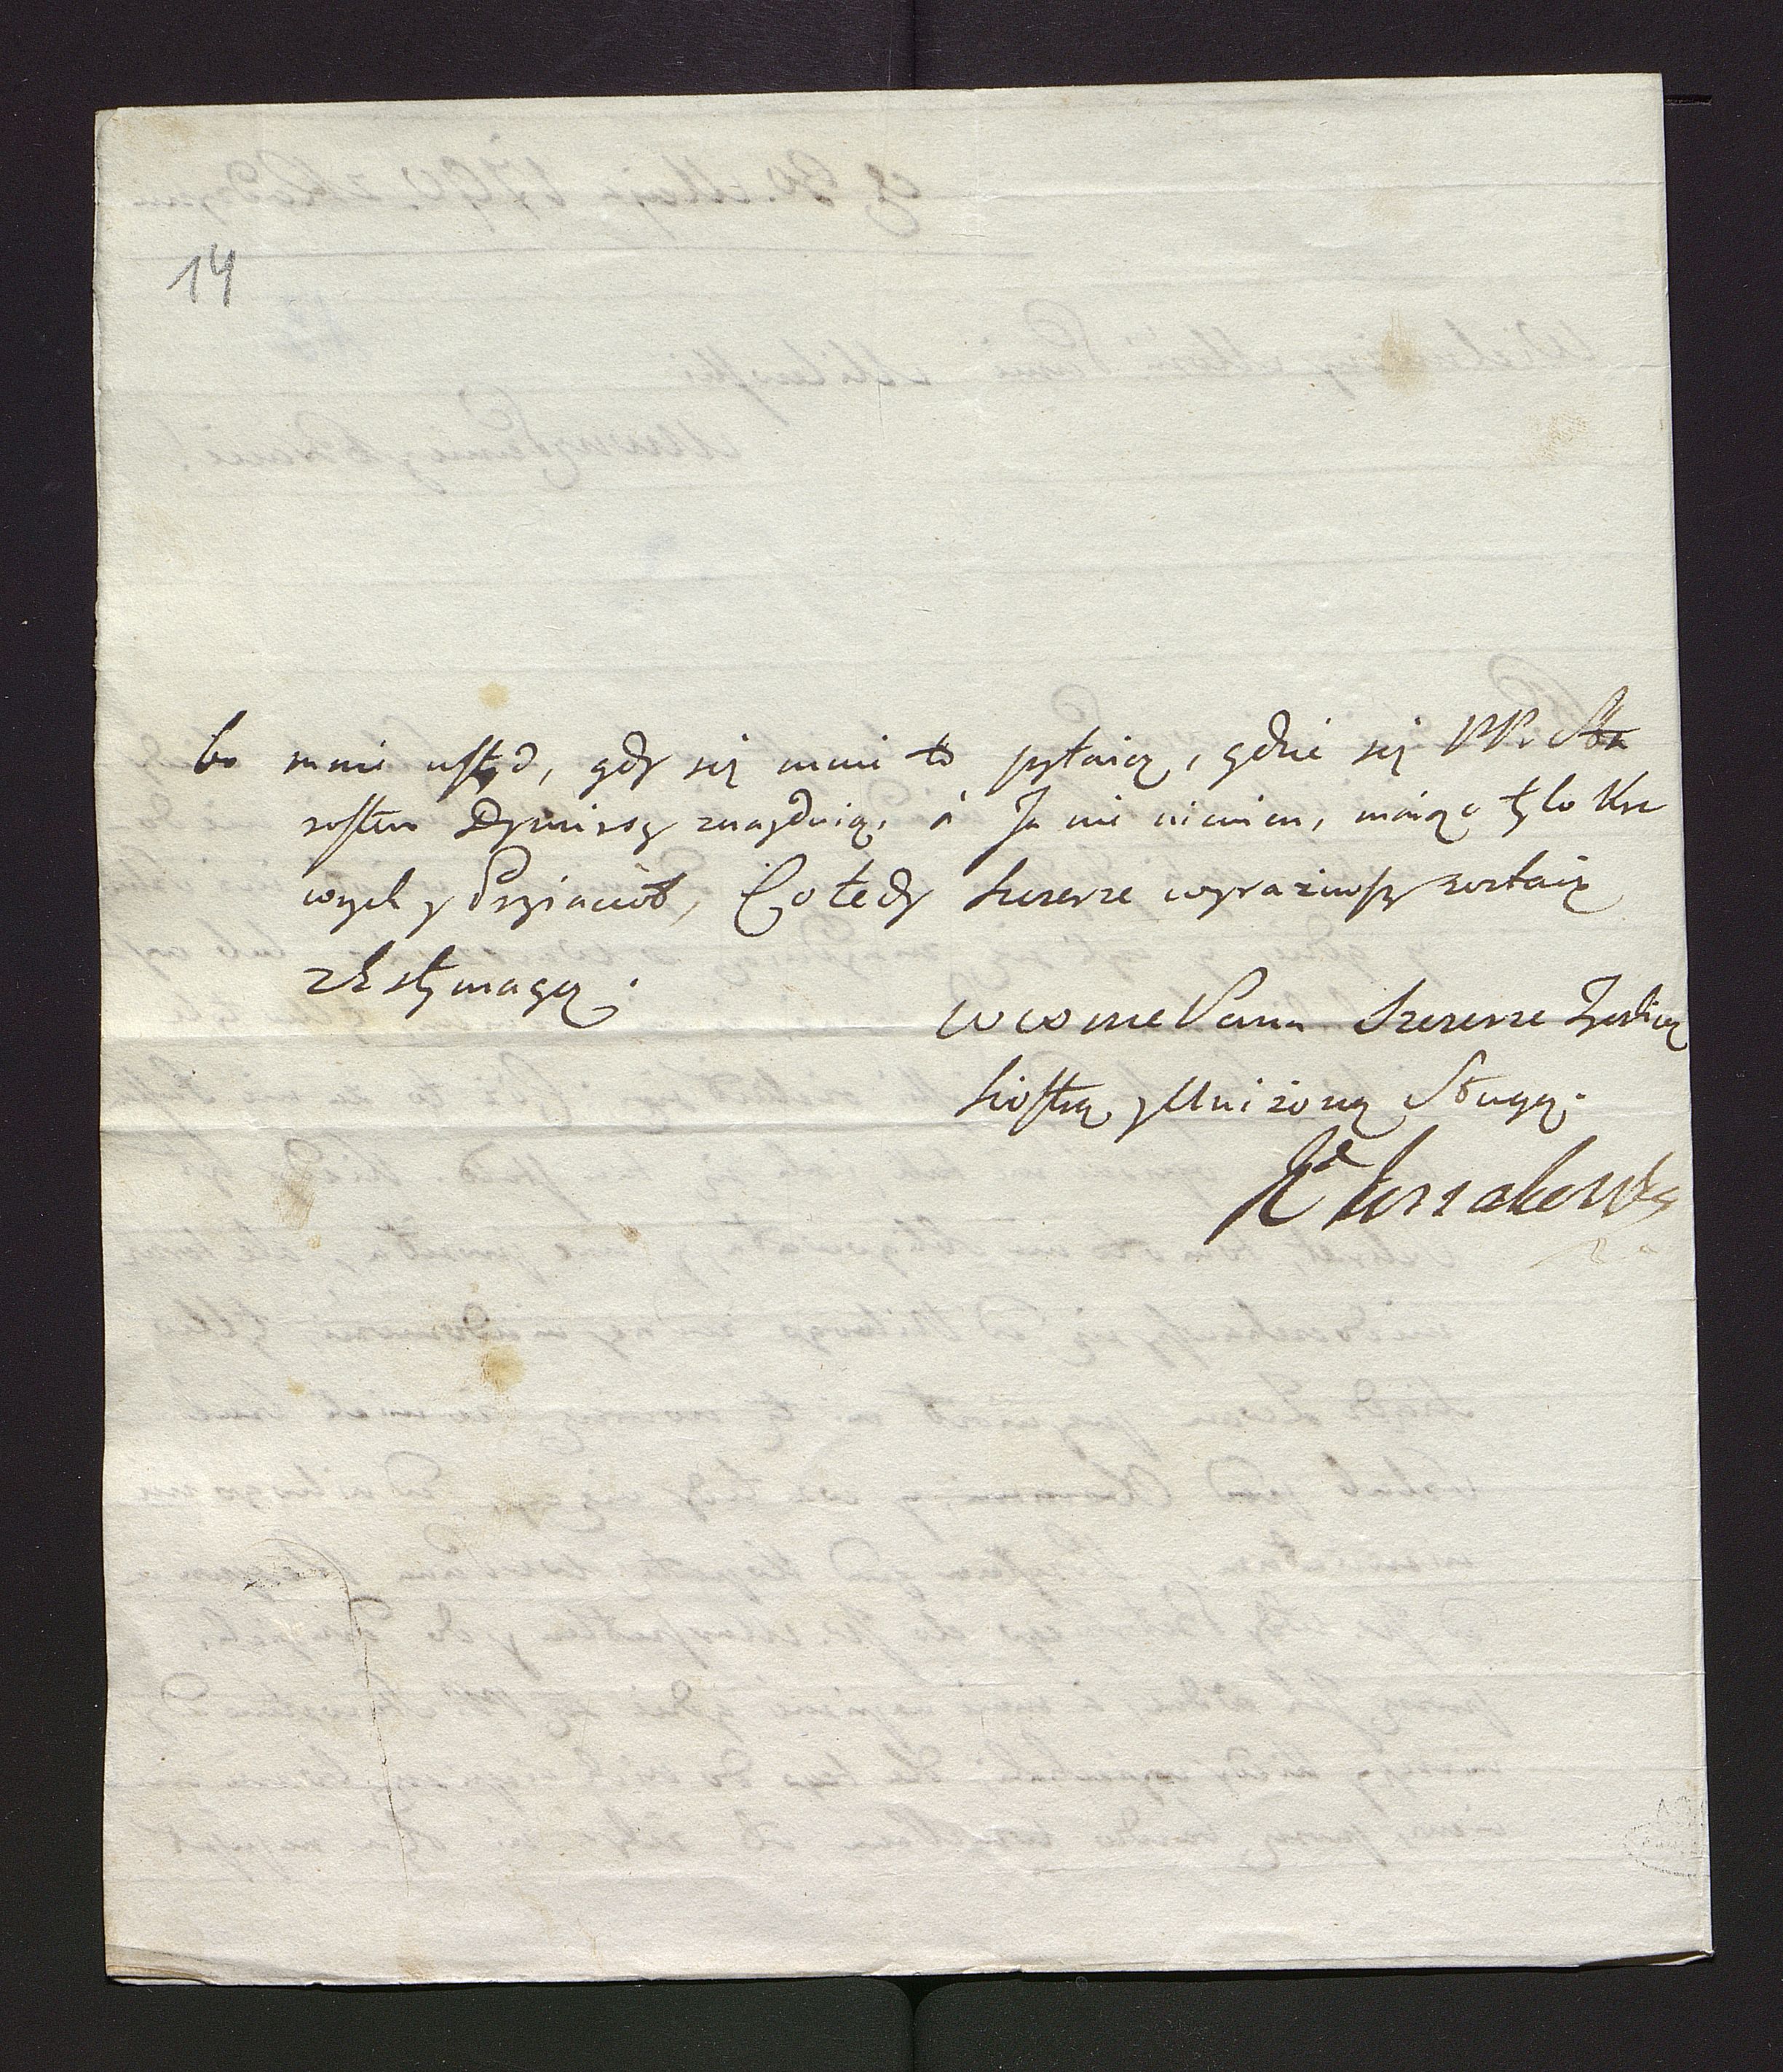 14
bo mnie wstyd, gdy się mnie to pytaią, gdzie się PP. Sta
rostwo Dymirscy znayduią, á Ja nie wiem, máiąc tylo Kre
wnych y Przyiaciół, Co tedy Szczerze wyraziwszy zostaię
z Estymacyą.
WWMe Pana Szczerze Życzliwą
Siostrą y Uniżoną Sługą.